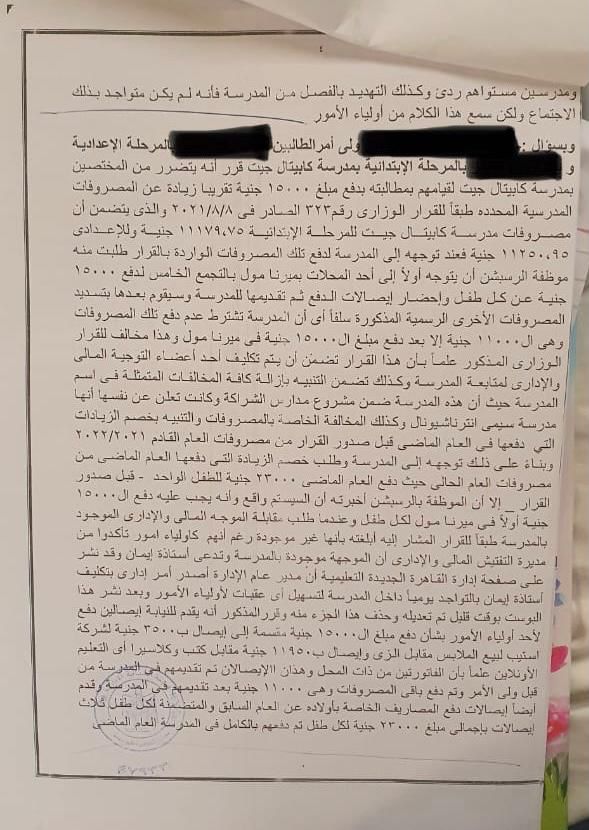 ٤
ومدرسين مستواهم ردئ وكذلك التهديد بالفصل من المدرسة فأنه لم يكن متواجد بذلك
الاجتماع ولكن سمع هذا الكلام من أولياء الأمور
وبسؤال : ولى أمر الطالبين بالمرحلة الإعدادية
و بالمرحلة الإبتدائية بمدرسة كابيتال جيت قرر أنه يتضرر من المختصين
بمدرسة كابيتال جيت لقيامهم بمطالبته بدفع مبلغ ١٥٠٠٠ جنية تقريبا زيادة عن المصروفات
المدرسية المحدده طبقاً للقرار الوزارى رقم ٣٢٣ الصادر فى ٢٠٢١/٨/٨ والذى يتضمن أن
مصروفات مدرسة كابيتال جيت للمرحلة الإبتدائية ١١١٧٩,٧٥ جنية وللإعدادى
١١٢٥٠,٩٥ جنية فعند توجهه إلى المدرسة لدفع تلك المصروفات الواردة بالقرار طلبت منه
موظفة الرسبشن أن يتوجه أولاً إلى أحد المحلات بميرنا مول بالتجمع الخامس لدفع ١٥٠٠٠
جنية عن كل طفل وإحضار إيصالات الدفع ثم تقديمها للمدرسة وسيقوم بعدها بتسديد
المصروفات الأخرى الرسمية المذكورة سلفاً أى أن المدرسة تشترط عدم دفع تلك المصروفات
وهى ال١١٠٠٠ جنية إلا بعد دفع مبلغ ال١٥٠٠٠ جنية فى ميرنا مول وهذا مخالف للقرار
الوزارى المذكور علماً بأن هذا القرار تضمن أن يتم تكليف أحد أعضاء التوجية المالى
والإدارى لمتابعة المدرسة وكذلك تضمن التنبيه بإزالة كافة المخالفات المتمثلة فى اسم
المدرسة حيث أن هذه المدرسة ضمن مشروع مدارس الشراكة وكانت تعلن عن نفسها أنها
مدرسة سيمى انترناشيونال وكذلك المخالفة الخاصة بالمصروفات والتنبيه بخصم الزيادات
التي دفعها فى العام الماضى قبل صدور القرار من مصروفات العام القادم ٢٠٢٢/٢٠٢١
وبناءً على ذلك توجهه إلى المدرسة وطلب خصم الزيادة التى دفعها العام الماضى من
مصروفات العام الحالى حيث دفع العام الماضى ٢٣٠٠٠ جنية للطفل الواحد - قبل صدور
القرار _ إلا أن الموظفة بالرسبشن أخبرته أن السيستم واقع وأنه يجب عليه دفع ال١٥٠٠٠
جنية أولاً فى ميرنا مول لكل طفل وعندما طلب مقابلة الموجه المالى والإدارى الموجود
بالمدرسة طبقاً للقرار المشار إليه أبلغته بأنها غير موجودة رغم أنهم كاولياء امور تأكدوا من
مديرة التفتيش المالى والإدارى أن الموجهة موجودة بالمدرسة وتدعى أستاذة إيمان وقد نشر
على صفحة إدارة القاهرة الجديدة التعليمية أن مدير عام الإدارة أصدر أمر إدارى بتكليف
أستاذة إيمان بالتواجد يومياً داخل المدرسة لتسهيل أى عقبات لأولياء الأمور وبعد نشر هذا
البوست بوقت قليل تم تعديله وحذف هذا الجزء منه وقرر المذكور أنه يقدم للنيابة إيصالين دفع
لأحد أولياء الأمور بشأن دفع مبلغ ال١٥٠٠٠ جنية متسمة إلى إيصال ب٣٥٠٠ جنية لشركة
استيب لبيع الملابس مقابل الزى وإيصال ب١١٩٥٠ جنية مقابل كتب وكلاسيرا أى التعليم
الأونلاين علماً بأن الفاتورتين من ذات المحل وهذان الإيصالان تم تقديمهم فى المدرسة من
قبل ولى الأمر وتم دفع باقى المصروفات وهى ١١٠٠٠ جنية بعد تقديمهم فى المدرسة وقدم
أيضاً إيصالات دفع المصاريف الخاصة بأولاده عن العام السابق والمتضمنة لكل طفل ثلاث
إيصالات بإجمالى مبلغ ٢٣٠٠٠ جنية لكل طفل تم دفعهم بالكامل فى المدرسة العام الماضى